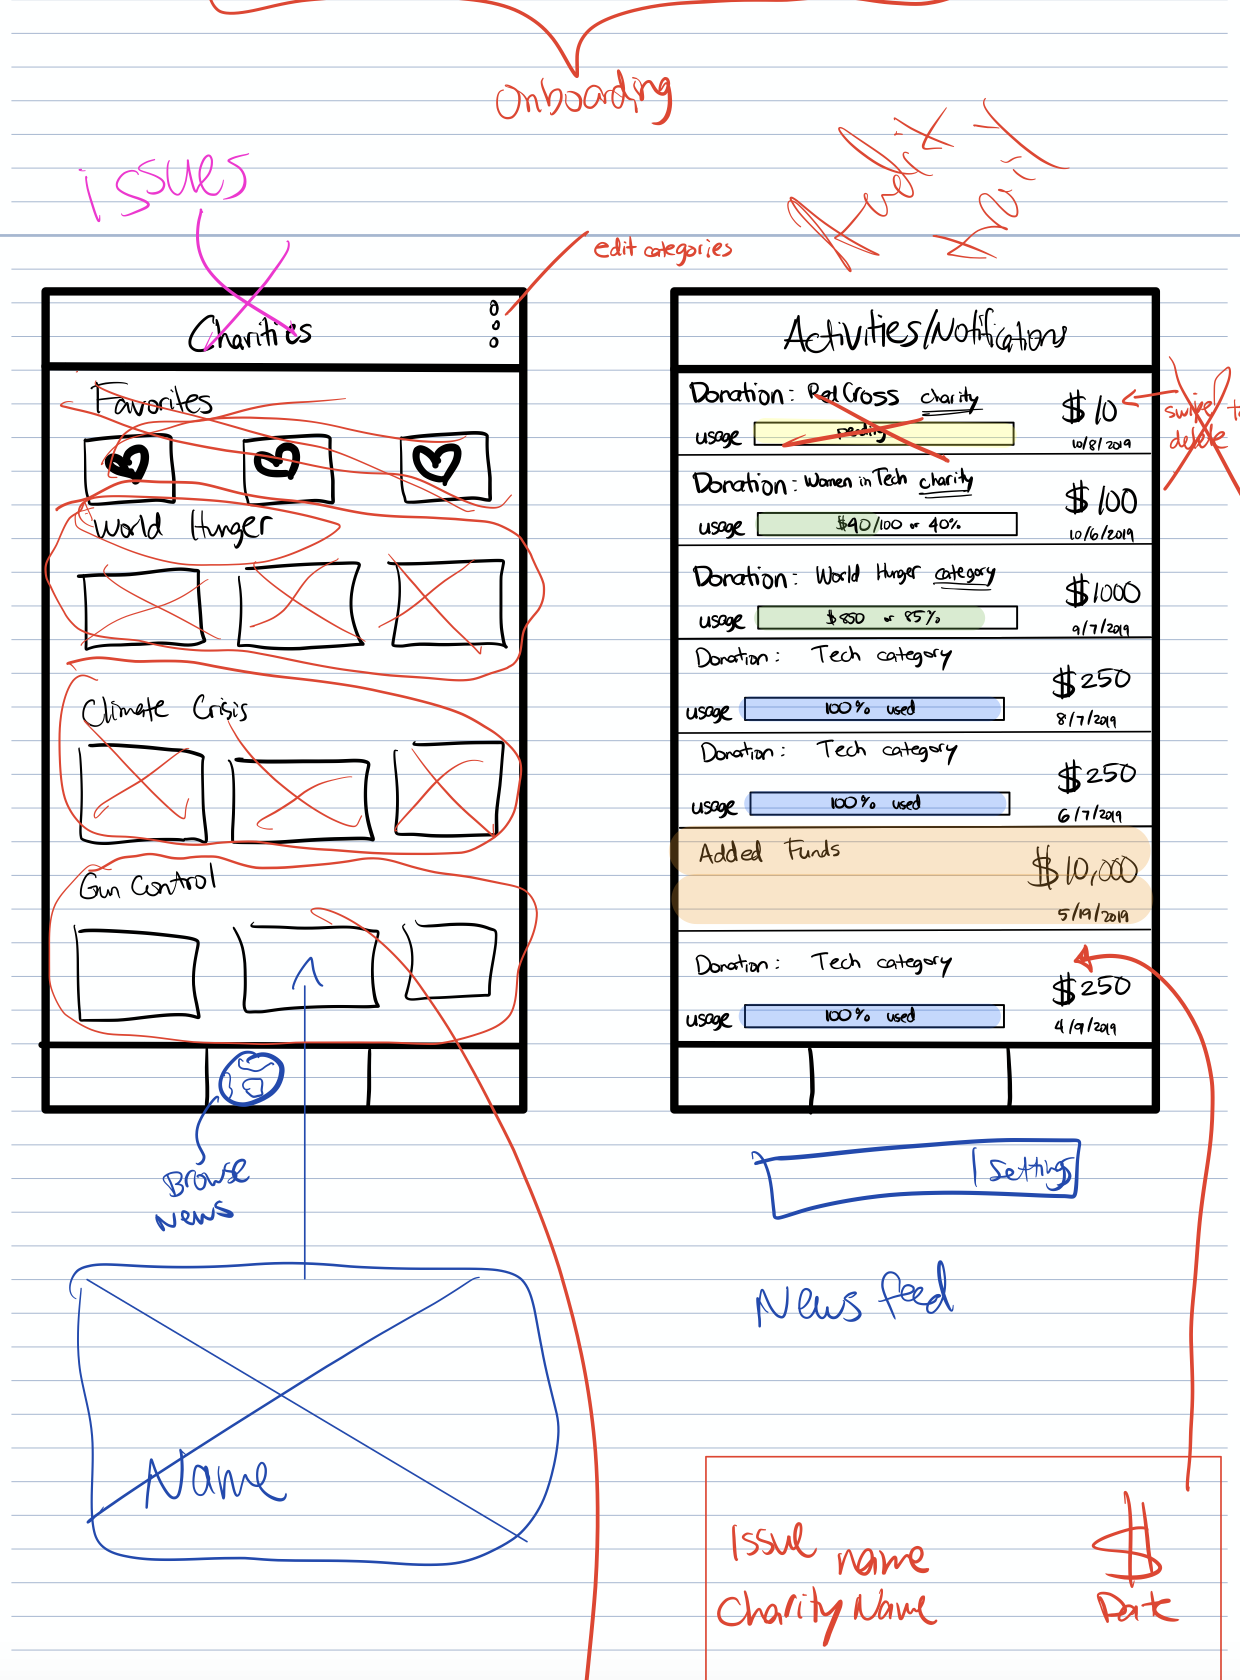 onboarding
issues
Audit
edit categories
Charities
Favorites
World Hunger
Climate Crisis
Gun Control
Browse
News
Name
Activities/Notifications
Donation: Red Cross charity
$10
usage pending
10/8/2019
swipe to
delete
Donation: Women in Tech charity
$100
usage $40/100 or 40%
10/6/2019
Donation: World Hunger category
$1000
usage $850 or 85%
9/7/2019
Donation: Tech category
$250
usage 100% used
8/7/2019
Donation: Tech category
$250
usage 100% used
6/7/2019
Added Funds
$10,000
5/19/2019
Donation: Tech category
$250
usage 100% used
4/9/2019
Settings
News feed
Issue name $
Charity Name Date